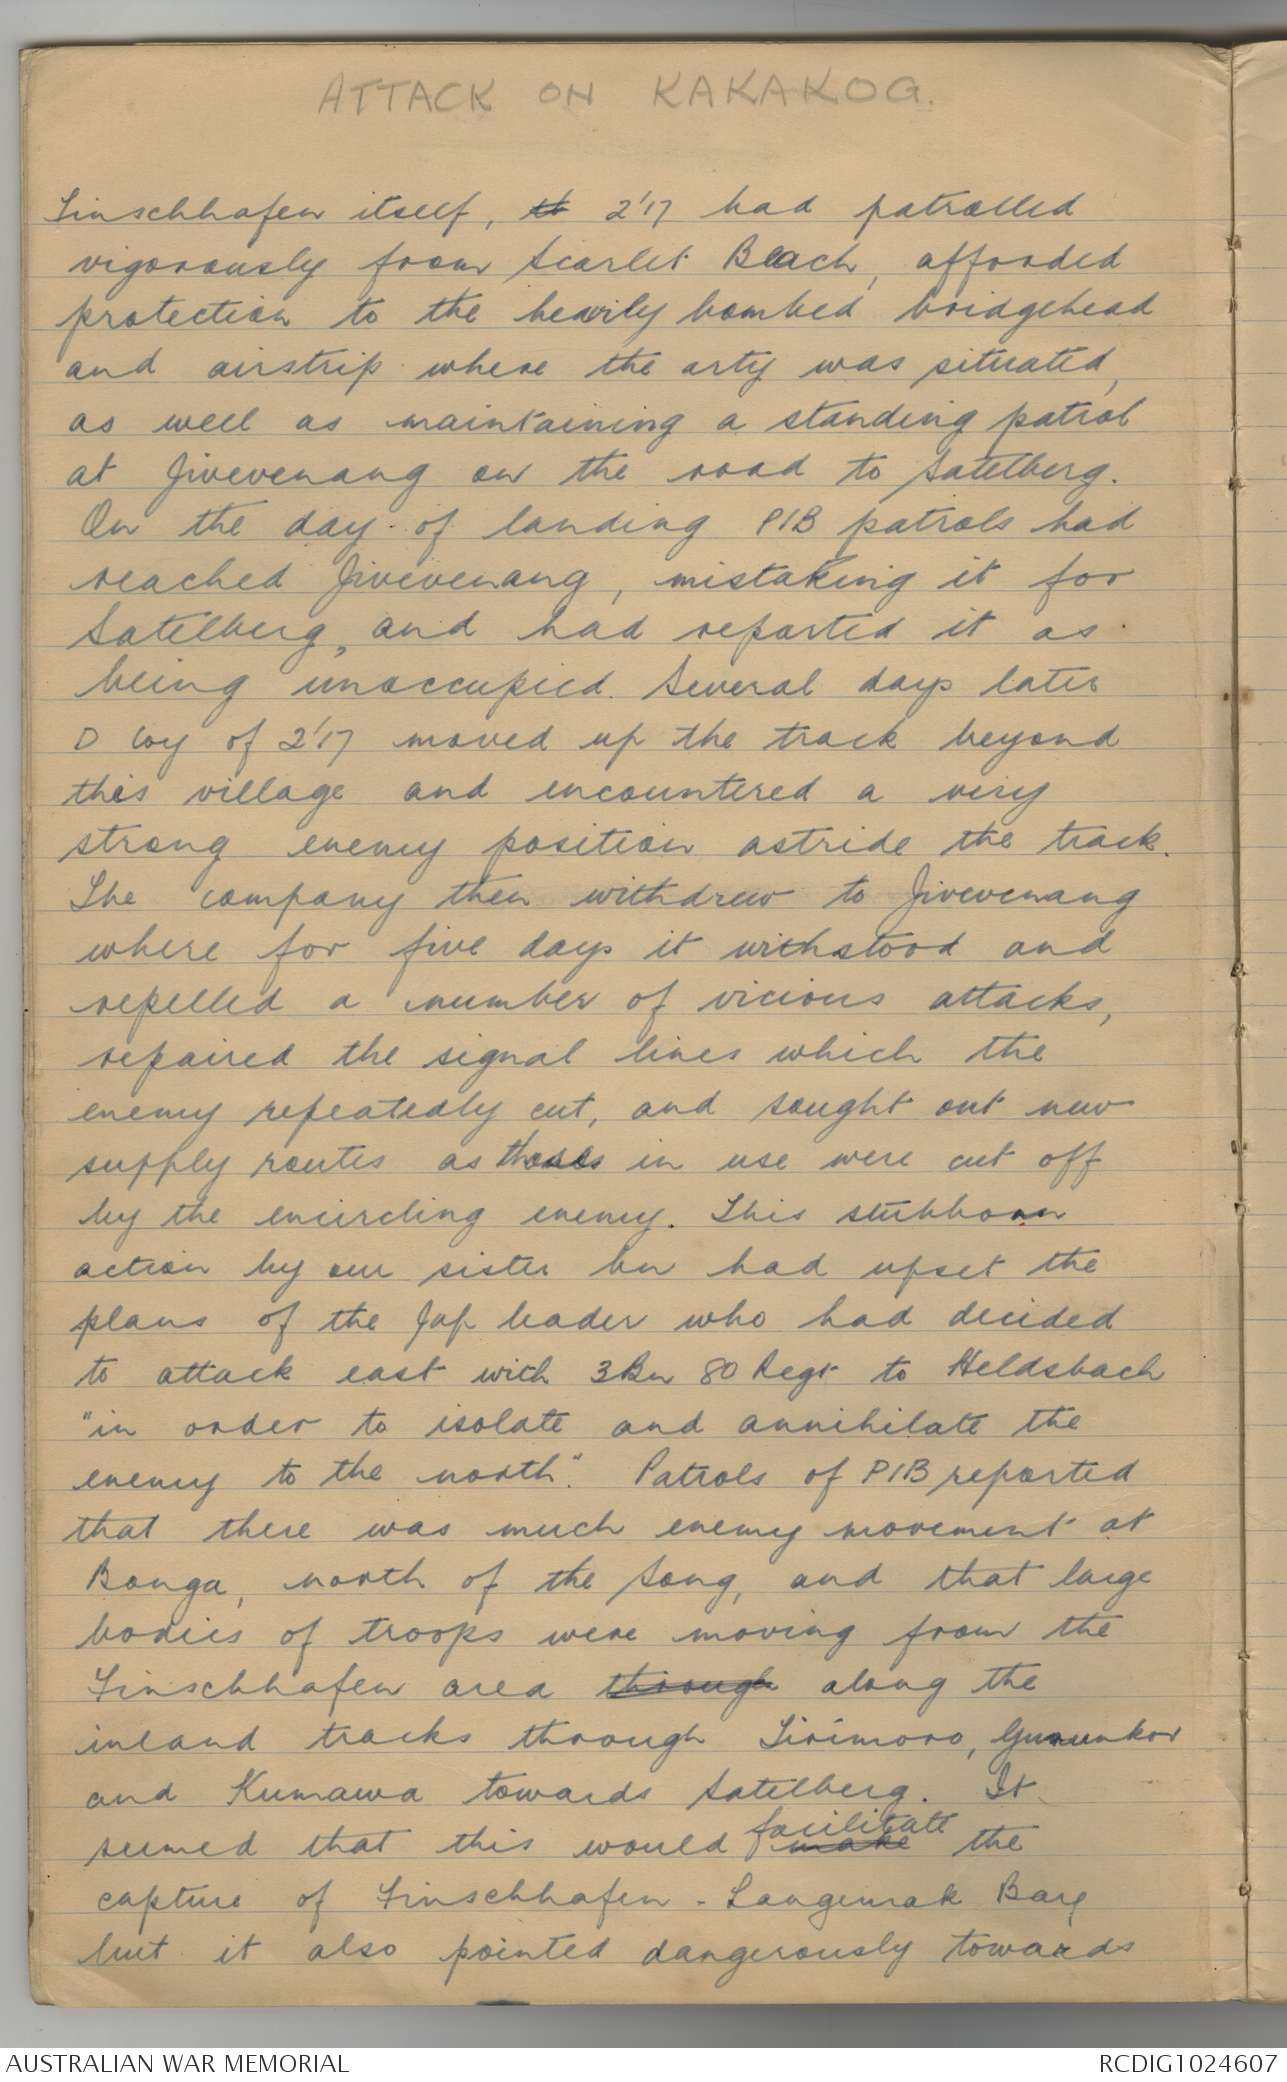 ATTACK ON KAKAKOG.
Finschhafen itself, th 2'17 had patrolled
vigorously from Scarlet Beach, afforded
protection to the heavily bombed bridgehead
and airstrip where the arty was situated,
as well as maintaining a standing patrol
at Jivevenang on the road to Satelberg.
On the day of landing PIB patrols had
reached Jivevenang, mistaking it for
Satelberg, and had reported it as
being unoccupied. Several days later
D Coy of 2'17 moved up the track beyond
this village and encountered a very
strong enemy position astride the track.
The company then withdrew to Jivevenang
where for five days it withstood and
repelled a number of vicious attacks,
repaired the signal lines which the
enemy repeatedly cut, and sought out new
supply routes as those in use were cut off
by the encircling enemy. This stubborn
action by our sister bn had upset the
plans of the Jap leader who had decided
to attack east with 3 Bn 80 Regt to Heldsbach
"in order to isolate and annihilate the
enemy to the north". Patrols of PIB reported
that there was much enemy movement at
Bonga, north of the Song, and that large
bodies of troops were moving from the
Finschhafen area through along the
inland tracks through Tirimoro, Gurunkor
and Kumawa towards Satelberg. It
seemed that this would make facilitate the
capture of Finschhafen - Langemak Bay
but it also pointed dangerously towards
AUSTRALIAN WAR MEMORIAL
RCDIG1024607